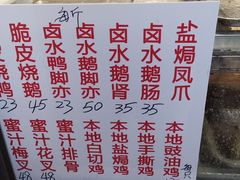 每斤
脆皮烧鹅
卤水鸭脚亦
卤水鹅脚亦
卤水鹅肾
卤水鹅肠
盐焗凤爪
23 45 23 50 35 35
蜜汁梅叉
蜜汁花叉
蜜汁排骨
本地白切鸡
本地盐焗鸡
本地手撕鸡
本地豉油鸡
48 48